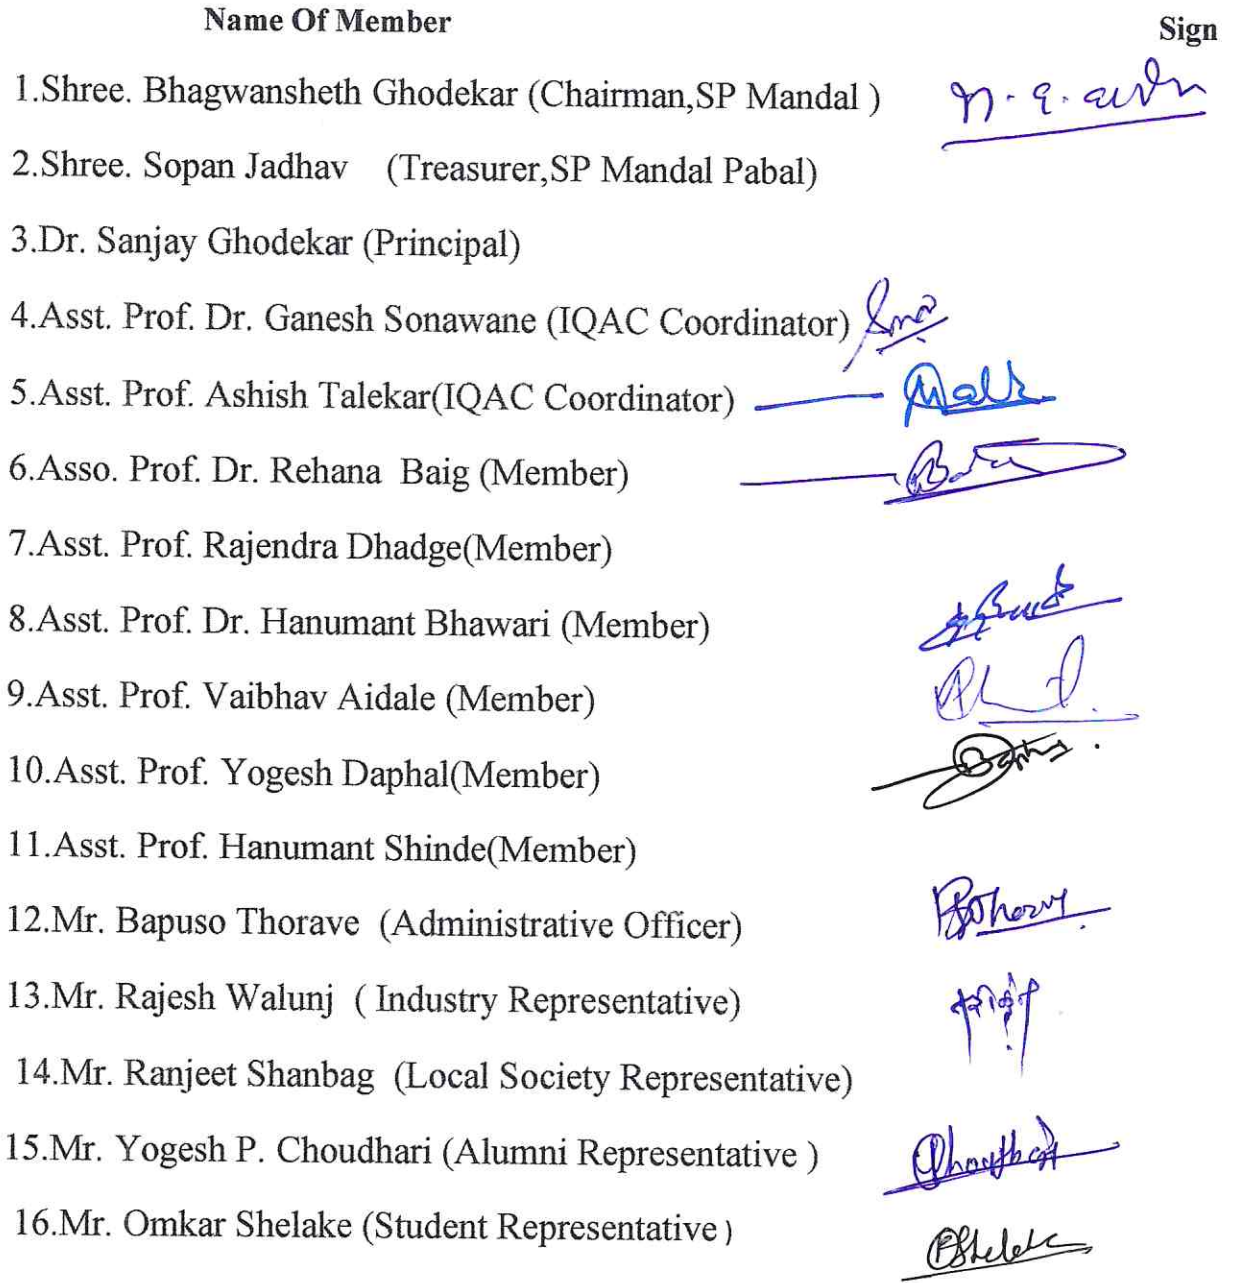 Name Of Member Sign
1.Shree. Bhagwansheth Ghodekar (Chairman,SP Mandal )
2.Shree. Sopan Jadhav (Treasurer,SP Mandal Pabal)
3.Dr. Sanjay Ghodekar (Principal)
4.Asst. Prof. Dr. Ganesh Sonawane (IQAC Coordinator)
5.Asst. Prof. Ashish Talekar(IQAC Coordinator)
6.Asso. Prof. Dr. Rehana Baig (Member)
7.Asst. Prof. Rajendra Dhadge(Member)
8.Asst. Prof. Dr. Hanumant Bhawari (Member)
9.Asst. Prof. Vaibhav Aidale (Member)
10.Asst. Prof. Yogesh Daphal(Member)
11.Asst. Prof. Hanumant Shinde(Member)
12.Mr. Bapuso Thorave (Administrative Officer)
13.Mr. Rajesh Walunj ( Industry Representative)
14.Mr. Ranjeet Shanbag (Local Society Representative)
15.Mr. Yogesh P. Choudhari (Alumni Representative )
16.Mr. Omkar Shelake (Student Representative)